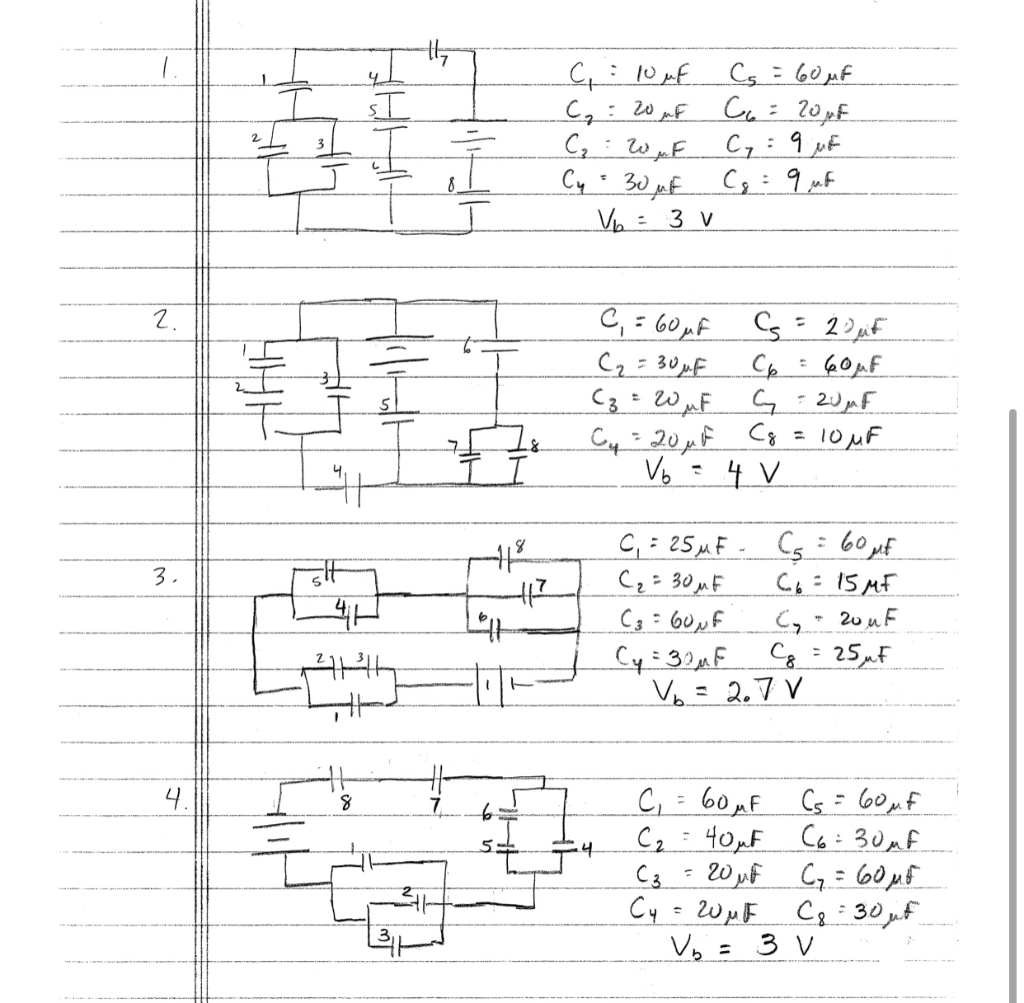 1.
7
1
4
5
2
3
6
8
C₁ = 10 μF C₅ = 60 μF
C₂ = 20 μF C₆ = 20 μF
C₃ = 20 μF C₇ = 9 μF
C₄ = 30 μF C₈ = 9 μF
V_b = 3 V
2.
1
2
3
6
5
7
8
4
C₁ = 60 μF C₅ = 20 μF
C₂ = 30 μF C₆ = 60 μF
C₃ = 20 μF C₇ = 20 μF
C₄ = 20 μF C₈ = 10 μF
V_b = 4 V
3.
8
5
7
4
6
2 3
1
C₁ = 25 μF C₅ = 60 μF
C₂ = 30 μF C₆ = 15 μF
C₃ = 60 μF C₇ = 20 μF
C₄ = 30 μF C₈ = 25 μF
V_b = 2.7 V
4.
8 7
6
5 4
1
2
3
C₁ = 60 μF C₅ = 60 μF
C₂ = 40 μF C₆ = 30 μF
C₃ = 20 μF C₇ = 60 μF
C₄ = 20 μF C₈ = 30 μF
V_b = 3 V